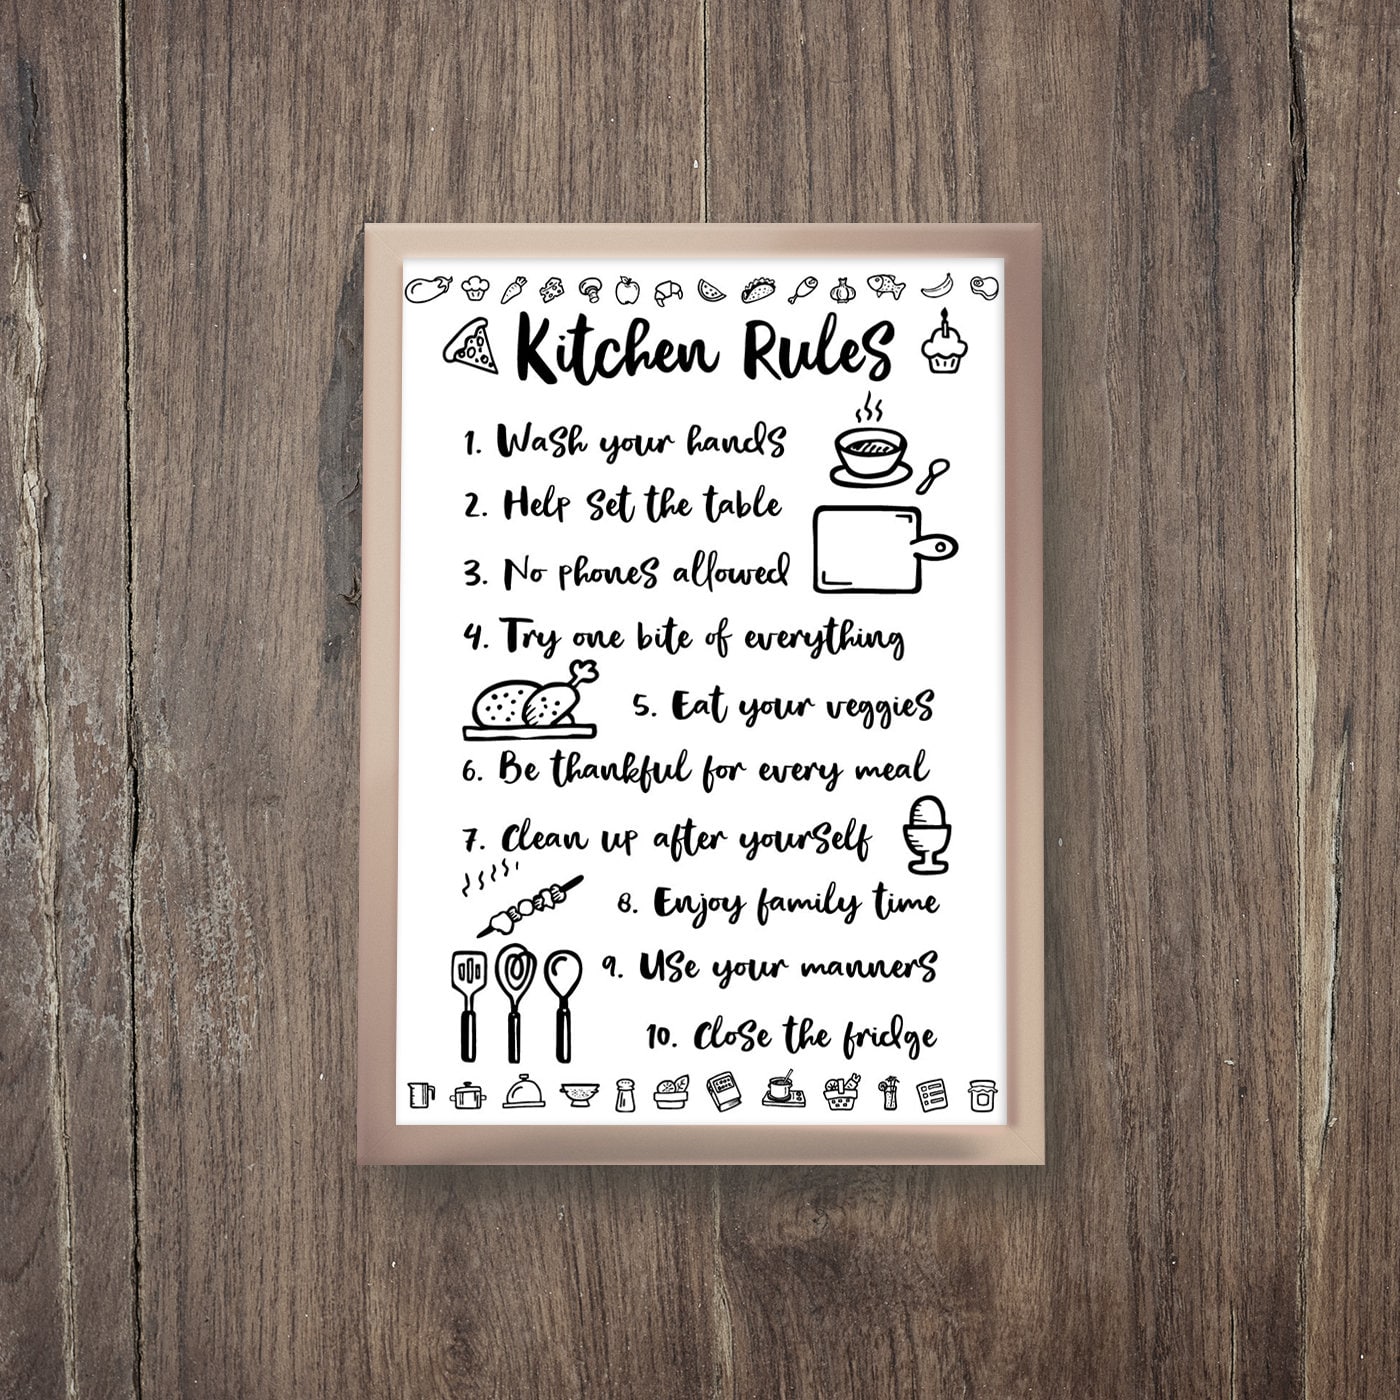 Kitchen Rules
1. Wash your hands
2. Help set the table
3. No phones allowed
4. Try one bite of everything
5. Eat your veggies
6. Be thankful for every meal
7. Clean up after yourself
8. Enjoy family time
9. Use your manners
10. Close the fridge